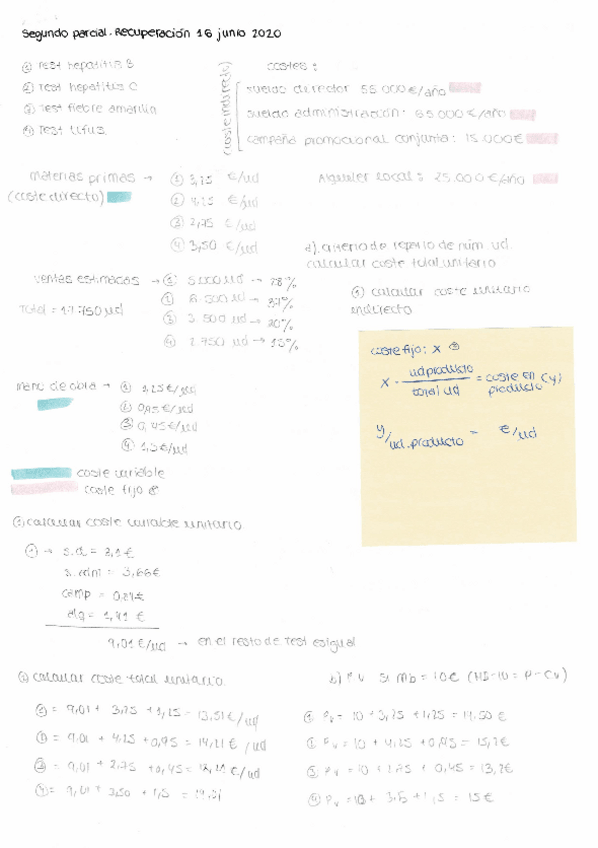 Segundo parcial. Recuperación 16 junio 2020
① Test hepatitis B
② Test hepatitis C
③ Test fiebre amarilla
④ Test tifus
costes:
(coste indirecto)
sueldo director 55.000€/año
sueldo administración: 65.000€/año
campaña promocional conjunta: 15.000€
Alquiler local: 25.000€/año
materias primas → ① 3,25 €/ud
(coste directo) ② 4,25 €/ud
③ 2,75 €/ud
④ 3,50 €/ud
ventas estimadas →
Total = 17.750 ud
③ 3.500 ud → 20%
④ 2.750 ud → 15%
a) criterio de reparto de núm. ud
calcular coste total unitario
① calcular coste unitario
indirecto
coste fijo: x
x · ud producto / total ud = coste en producto (y)
y/ud.producto = €/ud
mano de obra → ① 1,25€/ud
② 0,95€/ud
③ 0,45€/ud
④ 1,5€/ud
coste variable
coste fijo
② calcular coste variable unitario
① → s.d = 3,1€
s.adm = 3,66€
camp = 0,84€
alq = 1,41€
9,01€/ud → en el resto de test es igual
calcular coste total unitario.
= 9,01 + 3,25 + 1,25 = 13,51€/ud
= 9,01 + 4,25 + 0,95 = 14,21€/ud
= 9,01 + 2,75 + 0,45 =
④ = 9,01 + 3,50 + 1,5 =
b) PV si Mb = 10€
① Pv = 10 + 3,25 + 1,25 = 14,50€
Pv = 10 + 4,25 +
Pv = 10 + 2,75 + 0,45 = 13,2€
④ Pv = 10 + 3,5 + 1,5 = 15€